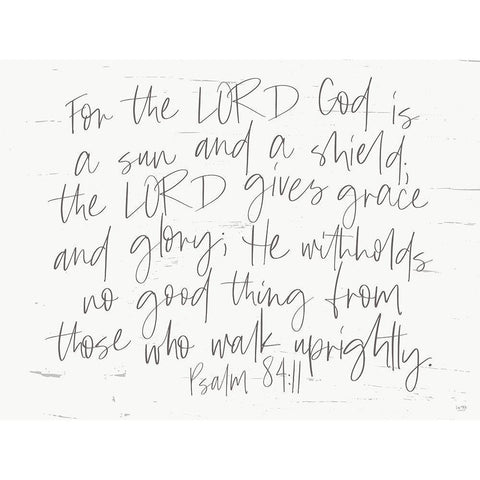 For the LORD God is
a sun and a shield;
the LORD gives grace
and glory; He withholds
no good thing from
those who walk uprightly.
Psalm 84:11